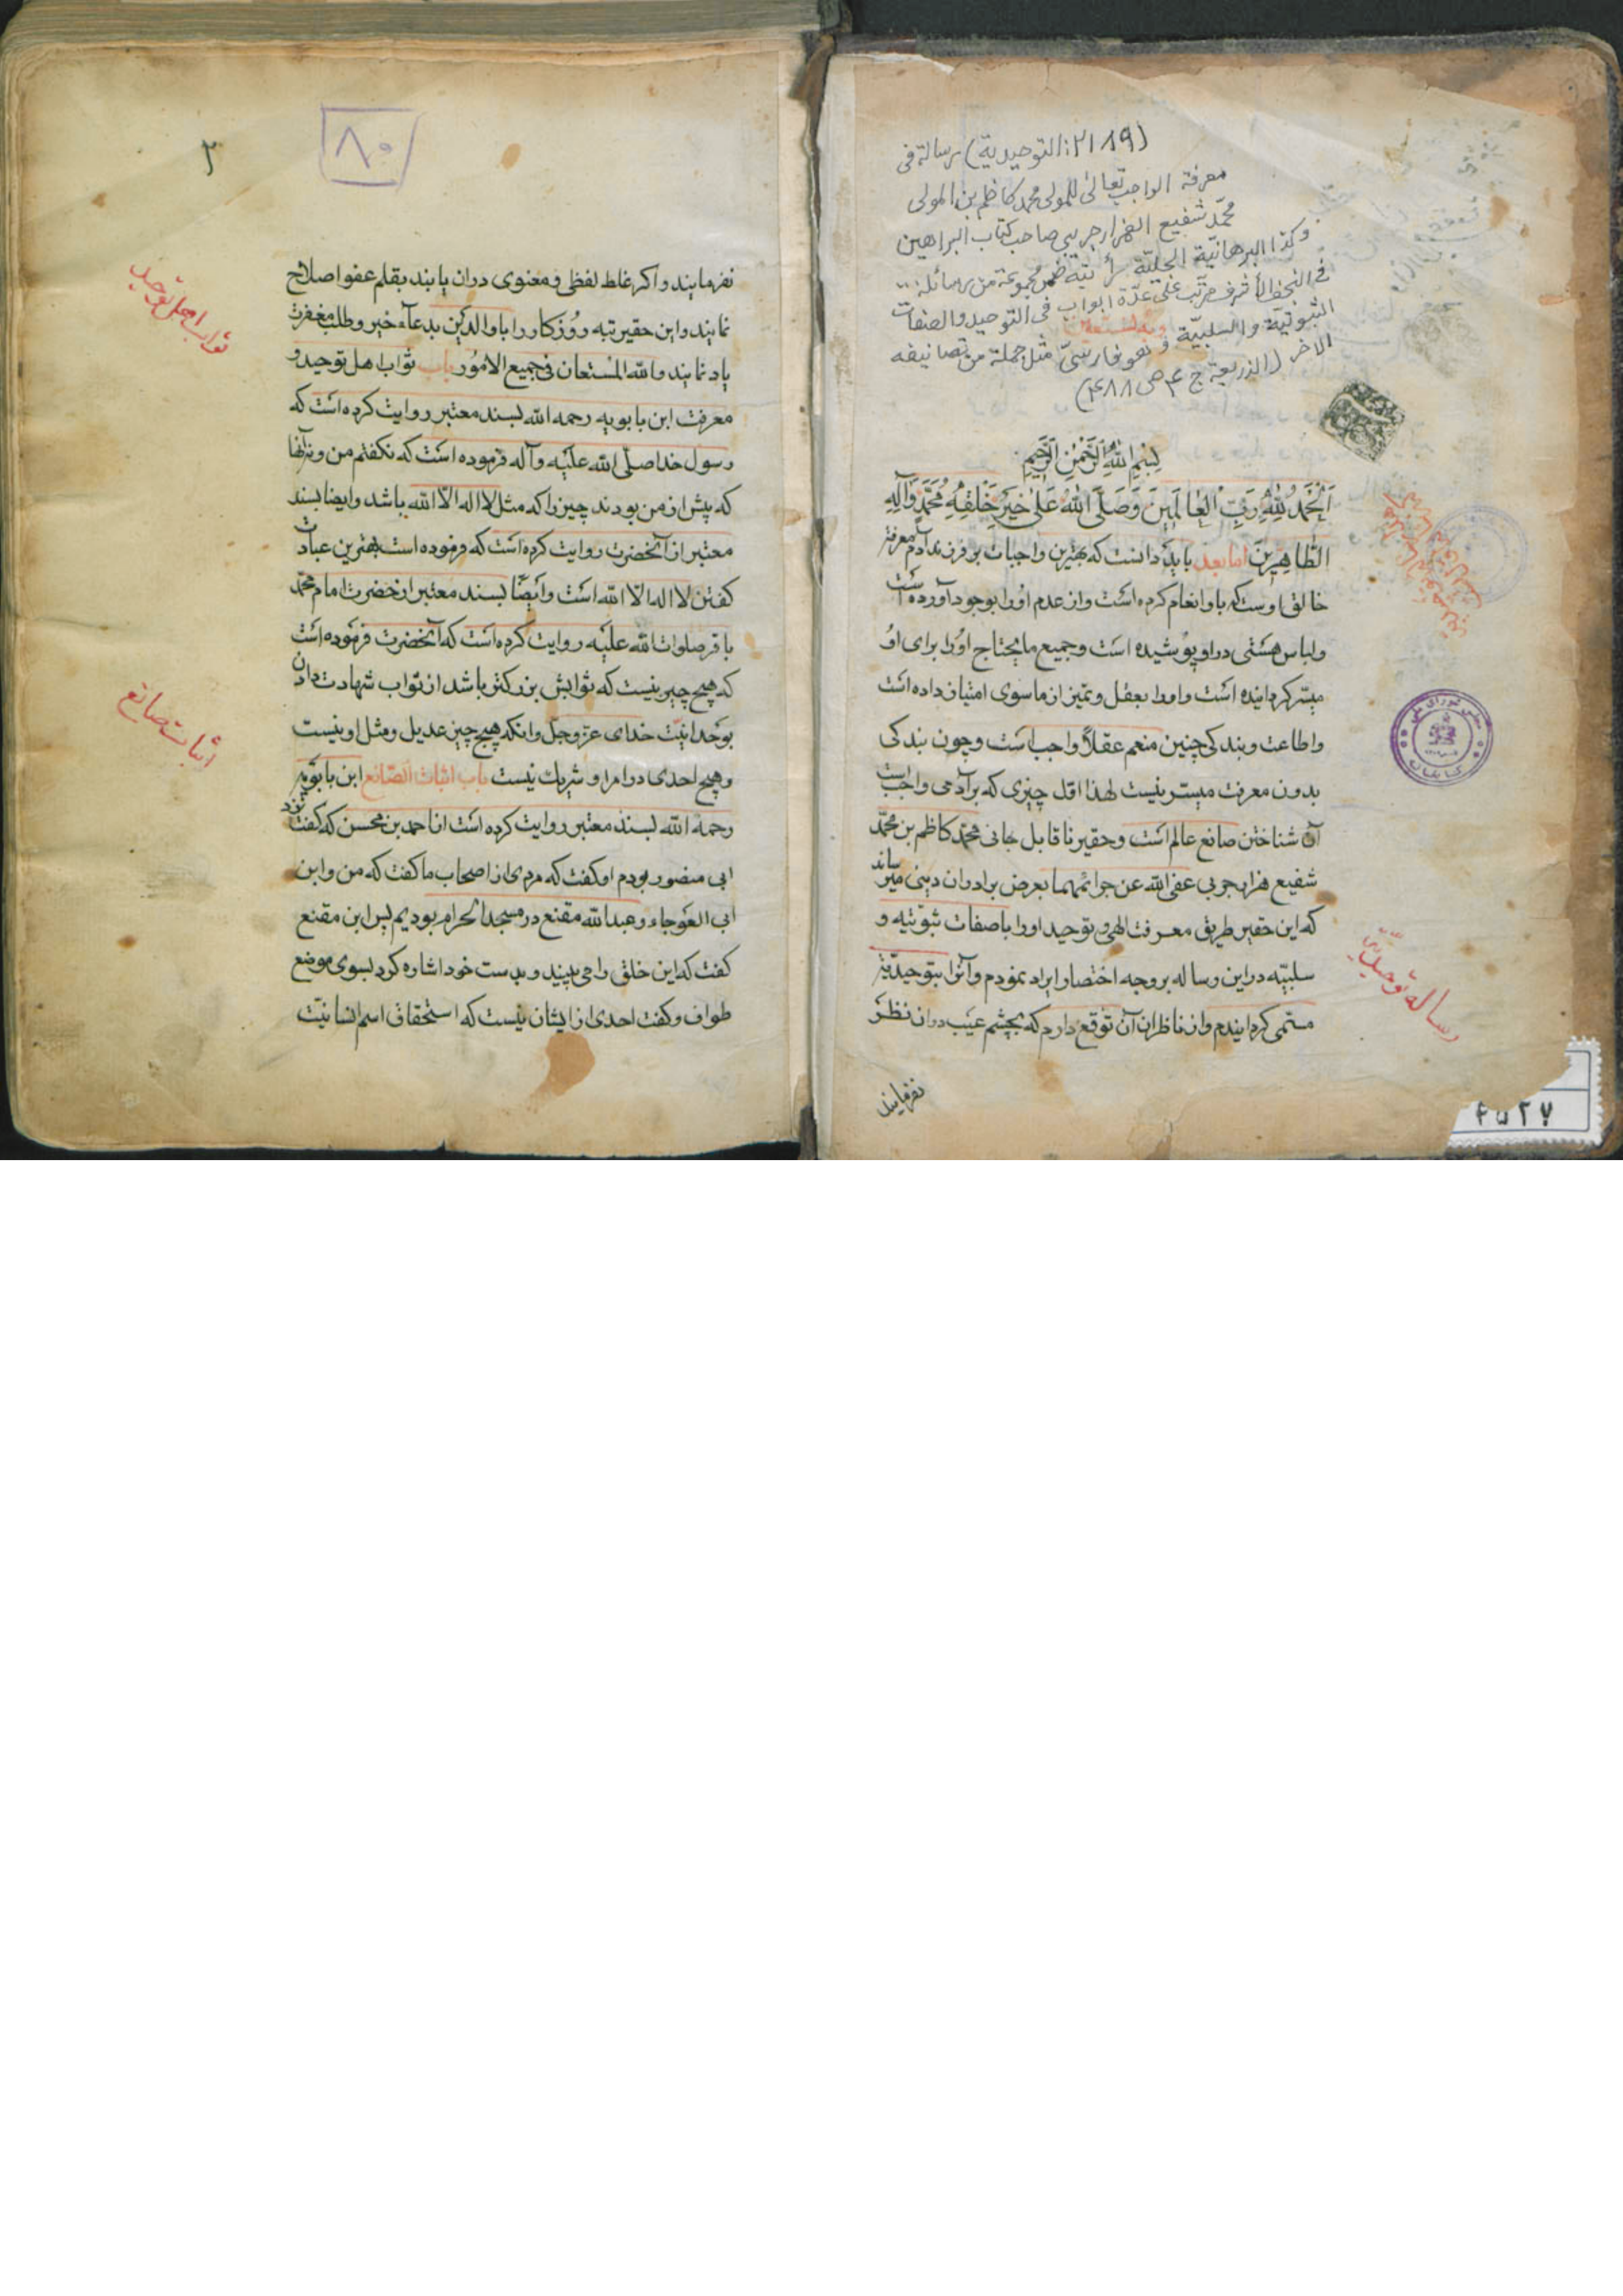 (٢١٨٩: التوحيدية) رسالة فى
معرفة الواجب تعالى للمولى محمد كاظم بن المولى
محمّد شفيع الهزارجريبي صاحب كتاب البراهين
وكذا البرهانيّة الجليّة رأيته ضمن مجموعة من رسائله
فى النجف الأشرف مرتّب على عدّة ابواب فى التوحيد والصفات
الثبوتيّة والسلبيّة وهو فارسىّ مثل جملة من تصانيفه
الاخر (الذريعة ج ۴ ص ۴۸۸)
وبه نستعين
بسم الله الرحمن الرحيم
اَلْحَمْدُ لِلّٰهِ رَبِّ الْعٰالَمينَ وَصَلَّى اللّٰهُ عَلٰى خَيْرِ خَلْقِهِ مُحَمَّدٍ وَآلِهِ
الطّاهِرينَ اما بعد بايد دانست كه بهترين واجبات بر فرزند آدم معرفة
خالق اوست كه باو انعام كرده است واز عدم اورا بوجود آورده است
ولباس هستى در او پوشيده است وجميع ما يحتاج اورا براى او
ميسّر كردانيده است واورا بعقل وتميز از ماسوى امتياز داده است
واطاعت وبندكى چنين منعم عقلاً واجب است وچون بندكى
بدون معرفت ميسّر نيست لهذا اوّل چيزى كه بر آدمى واجب است
آن شناختن صانع عالم است وحقير ناقابل جانى محمّد كاظم بن محمّد
شفيع هزارجريبى عفى الله عن جرائمهما بعرض برادران دينى ميرساند
كه اين حقير طريق معرفت الهى وتوحيد اورا با صفات ثبوتيّه و
سلبيّه در اين رساله بر وجه اختصار ايراد نمودم وآنرا بتوحيديّة
مسمّى كردانيدم واز ناظران آن توقع دارم كه بچشم عيب در ان نظر
نفرمايند
رساله توحيديّه
۴۵۲۷
۸۰
۲
نفرمايند واكر غلط لفظى ومعنوى در ان يابند بقلم عفو اصلاح
نمايند واين حقير تبه روزكار را با والدين بدعآء خير وطلب مغفرت
ياد نمايند والله المستعان فى جميع الامور باب ثواب اهل توحيد و
معرفت ابن بابويه رحمه الله بسند معتبر روايت كرده است كه
رسول خدا صلّى الله عليه وآله فرموده است كه نكفتم من ونه آنها
كه پيش از من بودند چيزيرا كه مثل لا اله الّا الله باشد وايضا بسند
معتبر از آنحضرت روايت كرده است كه فرموده است بهترين عبادت
كفتن لا اله الّا الله است وايضًا بسند معتبر از حضرت امام محمّد
باقر صلوات الله عليه روايت كرده است كه آنحضرت فرموده است
كه هيچ چيز نيست كه ثوابش بزركتر باشد از ثواب شهادت دادن
بوحدانيّت خداى عزّ وجلّ وانكه هيچ چيز عديل ومثل او نيست
وهيچ احدى در امر او شريك نيست باب اثبات الصّانع ابن بابويه
رحمه الله بسند معتبر روايت كرده است از احمد بن محسن كه كفت نزد
ابى منصور بودم او كفت كه مردى از اصحاب ما كفت كه من وابن
ابى العوجاء وعبد الله مقنع در مسجد الحرام بوديم پس ابن مقنع
كفت كه اين خلق را مى بينيد وبدست خود اشاره كرد بسوى موضع
طواف وكفت احدى از ايشان نيست كه استحقاق اسم انسانيّت
ثواب اهل توحيد
اثبات صانع